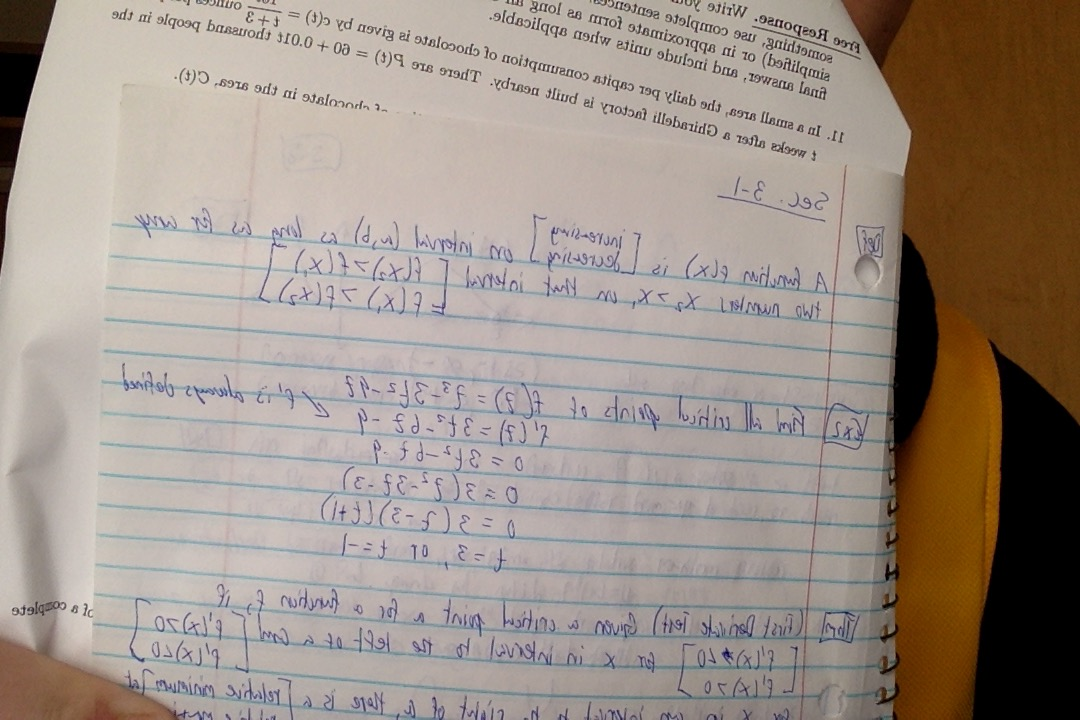 Free Response. Write your
something, use complete sentences
simplified) or in approximate form as long
final answer, and include units when applicable.
11. In a small area, the daily per capita consumption of chocolate is given by c(t) = / t + 3 ounces
t weeks after a Ghiradelli factory is built nearby. There are P(t) = 60 + 0.01t thousand people in the
of chocolate in the area, C(t).
Sec. 3-1
Def
A function f(x) is [increasing / decreasing] on interval (a,b) as long as for any
two numbers x₂ > x₁ on that interval [f(x₂) > f(x₁) / f(x₁) > f(x₂)]
Ex2 Find all critical points of f(t) = t³-3t²-9t
f'(t) = 3t²-6t-9 f' is always defined
0 = 3t²-6t-9
0 = 3(t²-3t-3)
0 = 3(t-3)(t+1)
t=3, or t=-1
Thm (First Derivative Test) Given a critical point a for a function f, if
[f'(x)<0 / f'(x)>0] for x in interval to the left of a and [f'(x)>0 / f'(x)<0]
for x in an interval to right of a, there is a [relative minimum
of a complete